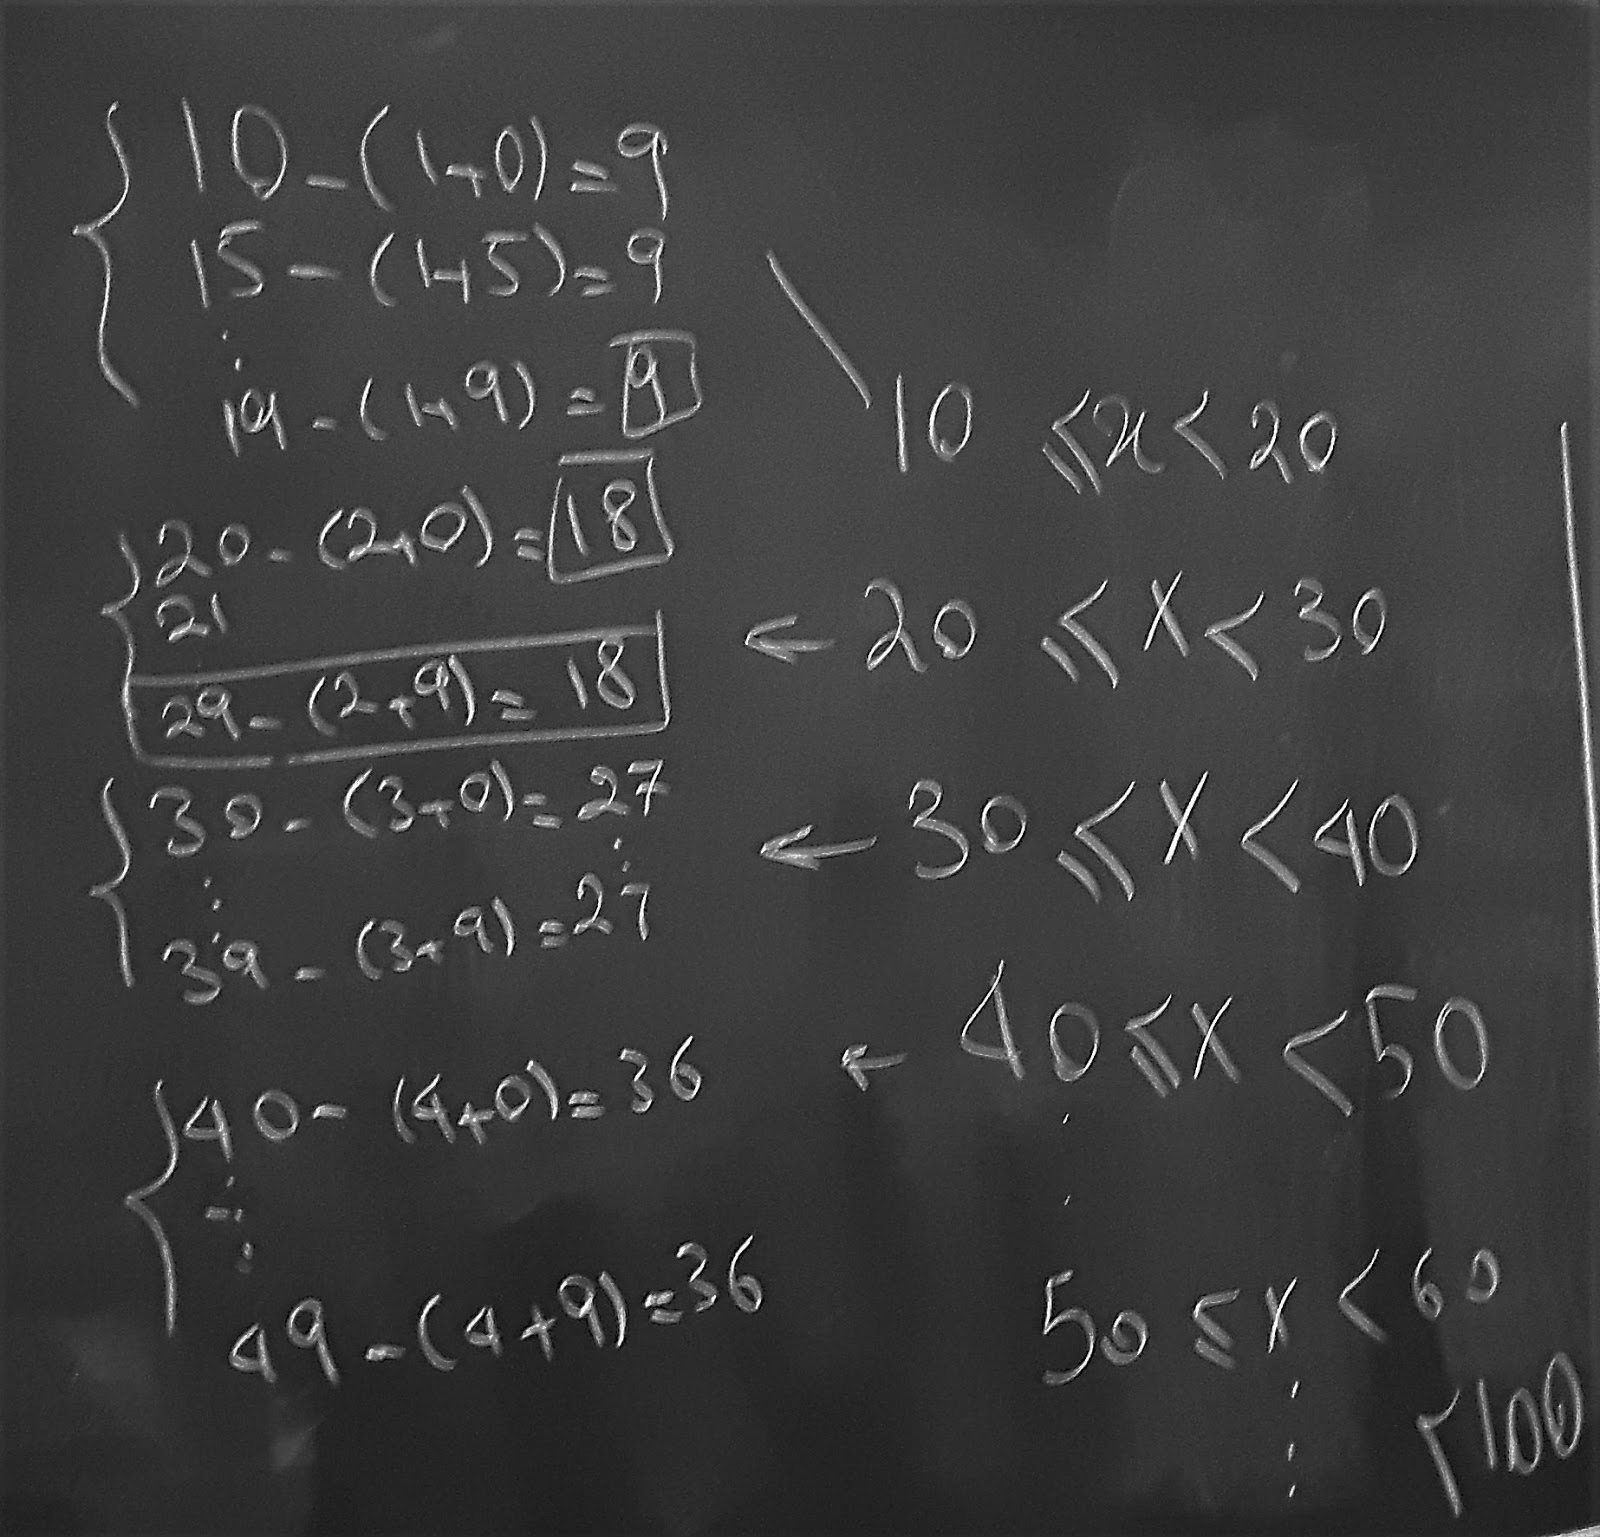 10 - (1+0) = 9
15 - (1+5) = 9
⋮
19 - (1+9) = 9
10 ⩽ x < 20
20 - (2+0) = 18
21
29 - (2+9) = 18
← 20 ⩽ x < 30
30 - (3+0) = 27
⋮ ⋮
39 - (3+9) = 27
← 30 ⩽ x < 40
40 - (4+0) = 36
⋮
49 - (4+9) = 36
← 40 ⩽ x < 50
⋮
50 ≤ x < 60
⋮
< 100